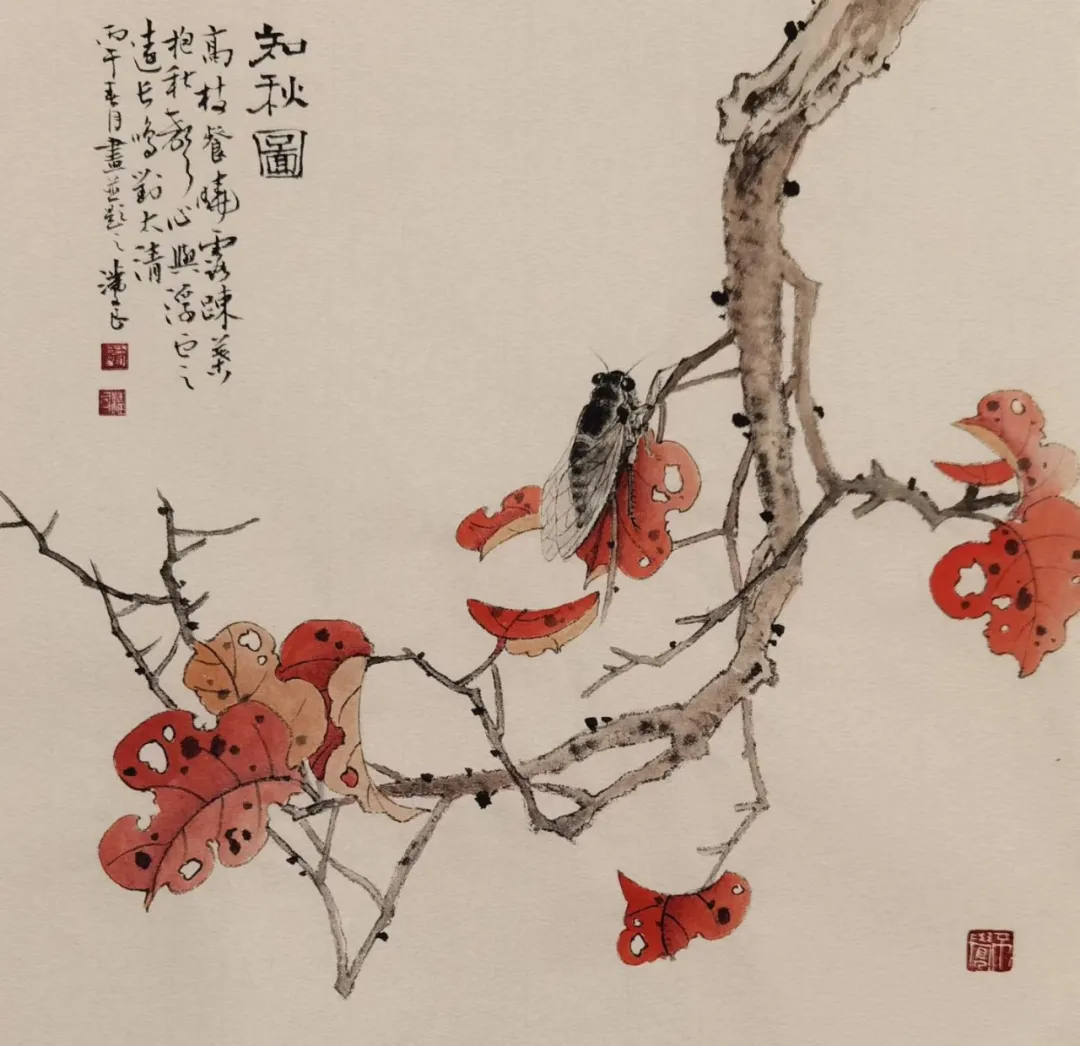 知秋圖
高枝餐曉露踈葉
抱秋聲心與浮云
遠長鳴對太清
丙午春月畫並題之